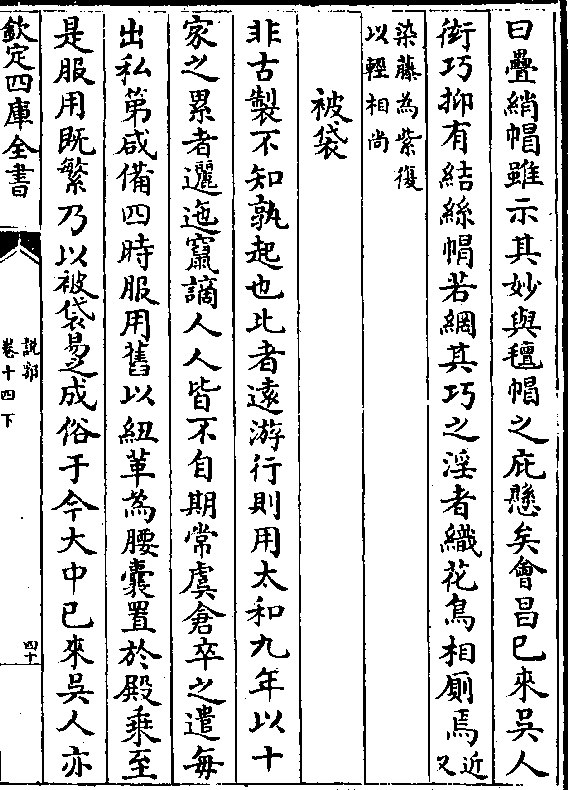 曰疊綃帽雖示其妙與氊帽之庇懸矣會昌已來吳人
衒巧抑有結絲帽若網其巧之淫者織花鳥相厠焉近又
染藤為紫復
以輕相尚
被袋
非古製不知孰起也比者遠游行則用太和九年以十
家之累者邐迤竄謫人人皆不自期常虞倉卒之遣每
出私第咸備四時服用舊以紐革為腰囊置於殿乘至
是服用既繁乃以被袋易之成俗于今大中已來吳人亦
欽定四庫全書
說郛
卷十四下
四十